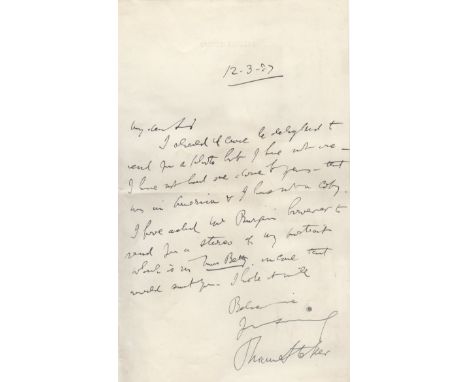 12-3-97
My dear Sir
I should of course be delighted to
send you a photo but I have not one -
I have not had one done for years - that
was in America & I have not a copy.
I have asked Mr Burgin however to
send you a stereo of my portrait
which is in
would suit you. I hope it will
Believe me
Yours
Bram Stoker